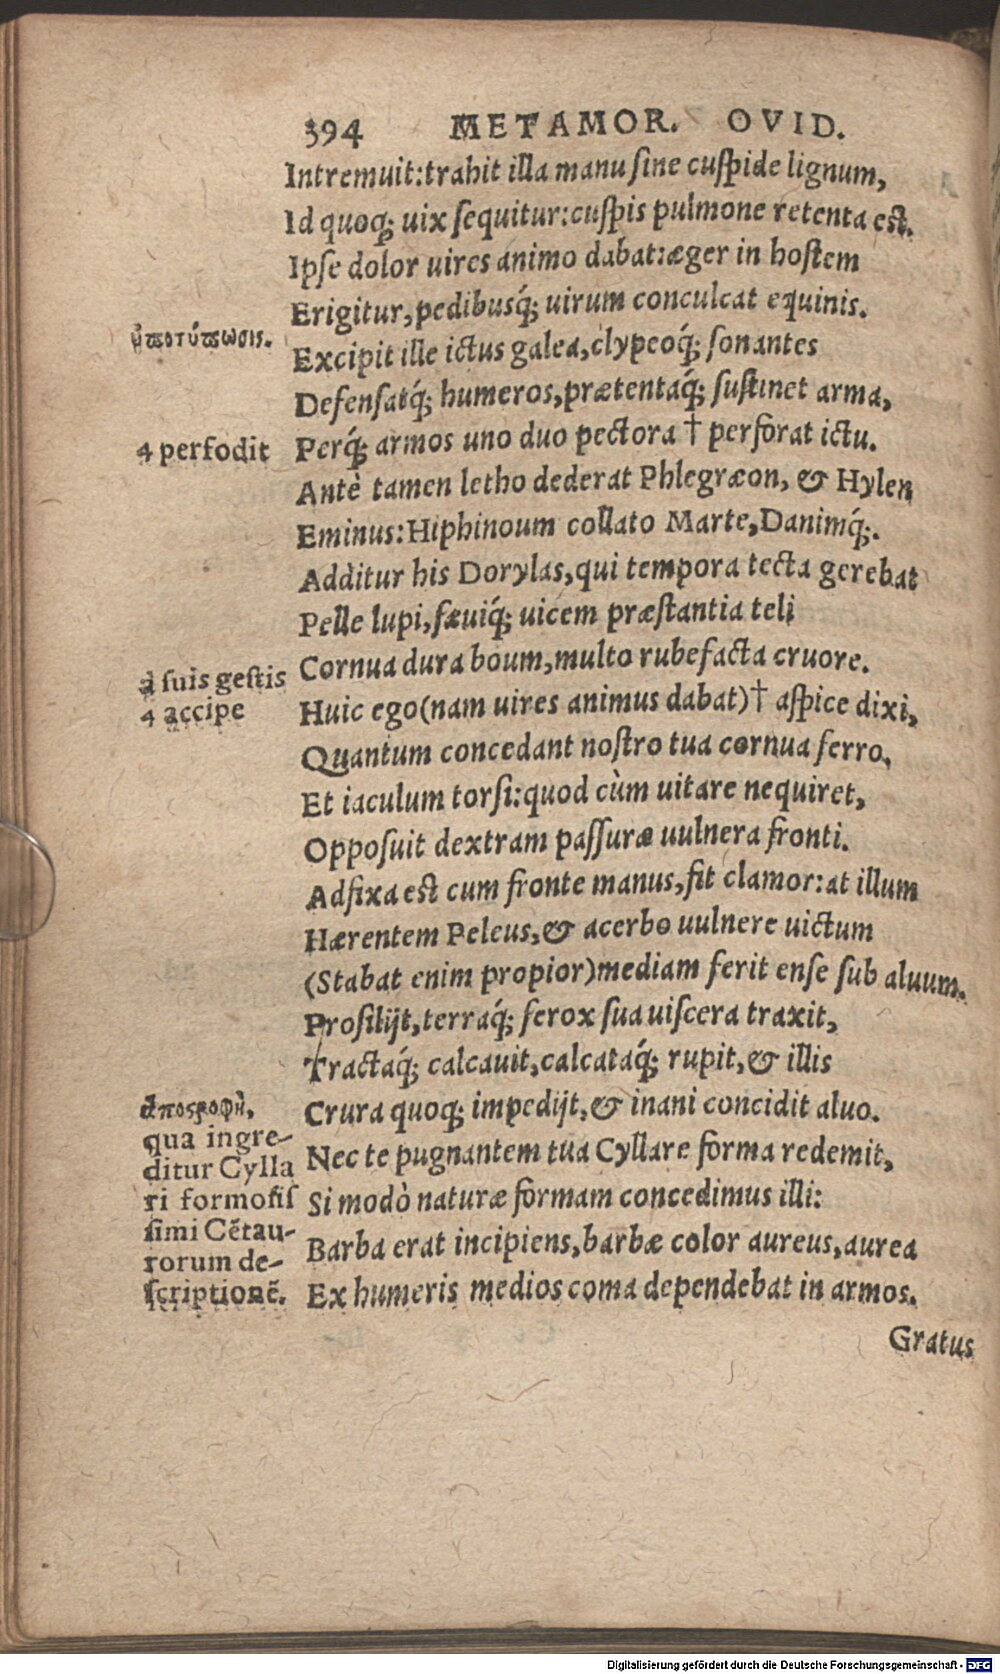 394 METAMOR. OVID.
Intremuit:trahit illa manu sine cuspide lignum,
Id quoq; uix sequitur:cuspis pulmone retenta est.
Ipse dolor uires animo dabat:æger in hostem
Erigitur,pedibusq́; uirum conculcat equinis.
ὑποτύπωσις.
Excipit ille ictus galea,clypeoq́; sonantes
Defensatq́; humeros,prætentaq́; sustinet arma,
4 perfodit
Perq́; armos uno duo pectora † perforat ictu.
Antè tamen letho dederat Phlegræon, & Hylen
Eminus:Hiphinoum collato Marte,Danimq́;.
Additur his Dorylas,qui tempora tecta gerebat
Pelle lupi,sæuiq́; uicem præstantia teli
à suis gestis
Cornua dura boum,multo rubefacta cruore.
4 accipe
Huic ego(nam uires animus dabat)† aspice dixi,
Quantum concedant nostro tua cornua ferro,
Et iaculum torsi:quod cùm uitare nequiret,
Opposuit dextram passuræ uulnera fronti.
Adfixa est cum fronte manus,fit clamor:at illum
Hærentem Peleus,& acerbo uulnere uictum
(Stabat enim propior)mediam ferit ense sub aluum.
Prosilijt,terraq́; ferox sua uiscera traxit,
Tractaq́; calcauit,calcataq́; rupit,& illis
ἀποστροφὴ,
qua ingre-
ditur Cylla
ri formosis
simi Cētau-
rorum de-
scriptionē.
Crura quoq; impedijt,& inani concidit aluo.
Nec te pugnantem tua Cyllare forma redemit,
Si modò naturæ formam concedimus illi:
Barba erat incipiens,barbæ color aureus,aurea
Ex humeris medios coma dependebat in armos.
Gratus
Digitalisierung gefördert durch die Deutsche Forschungsgemeinschaft - DFG